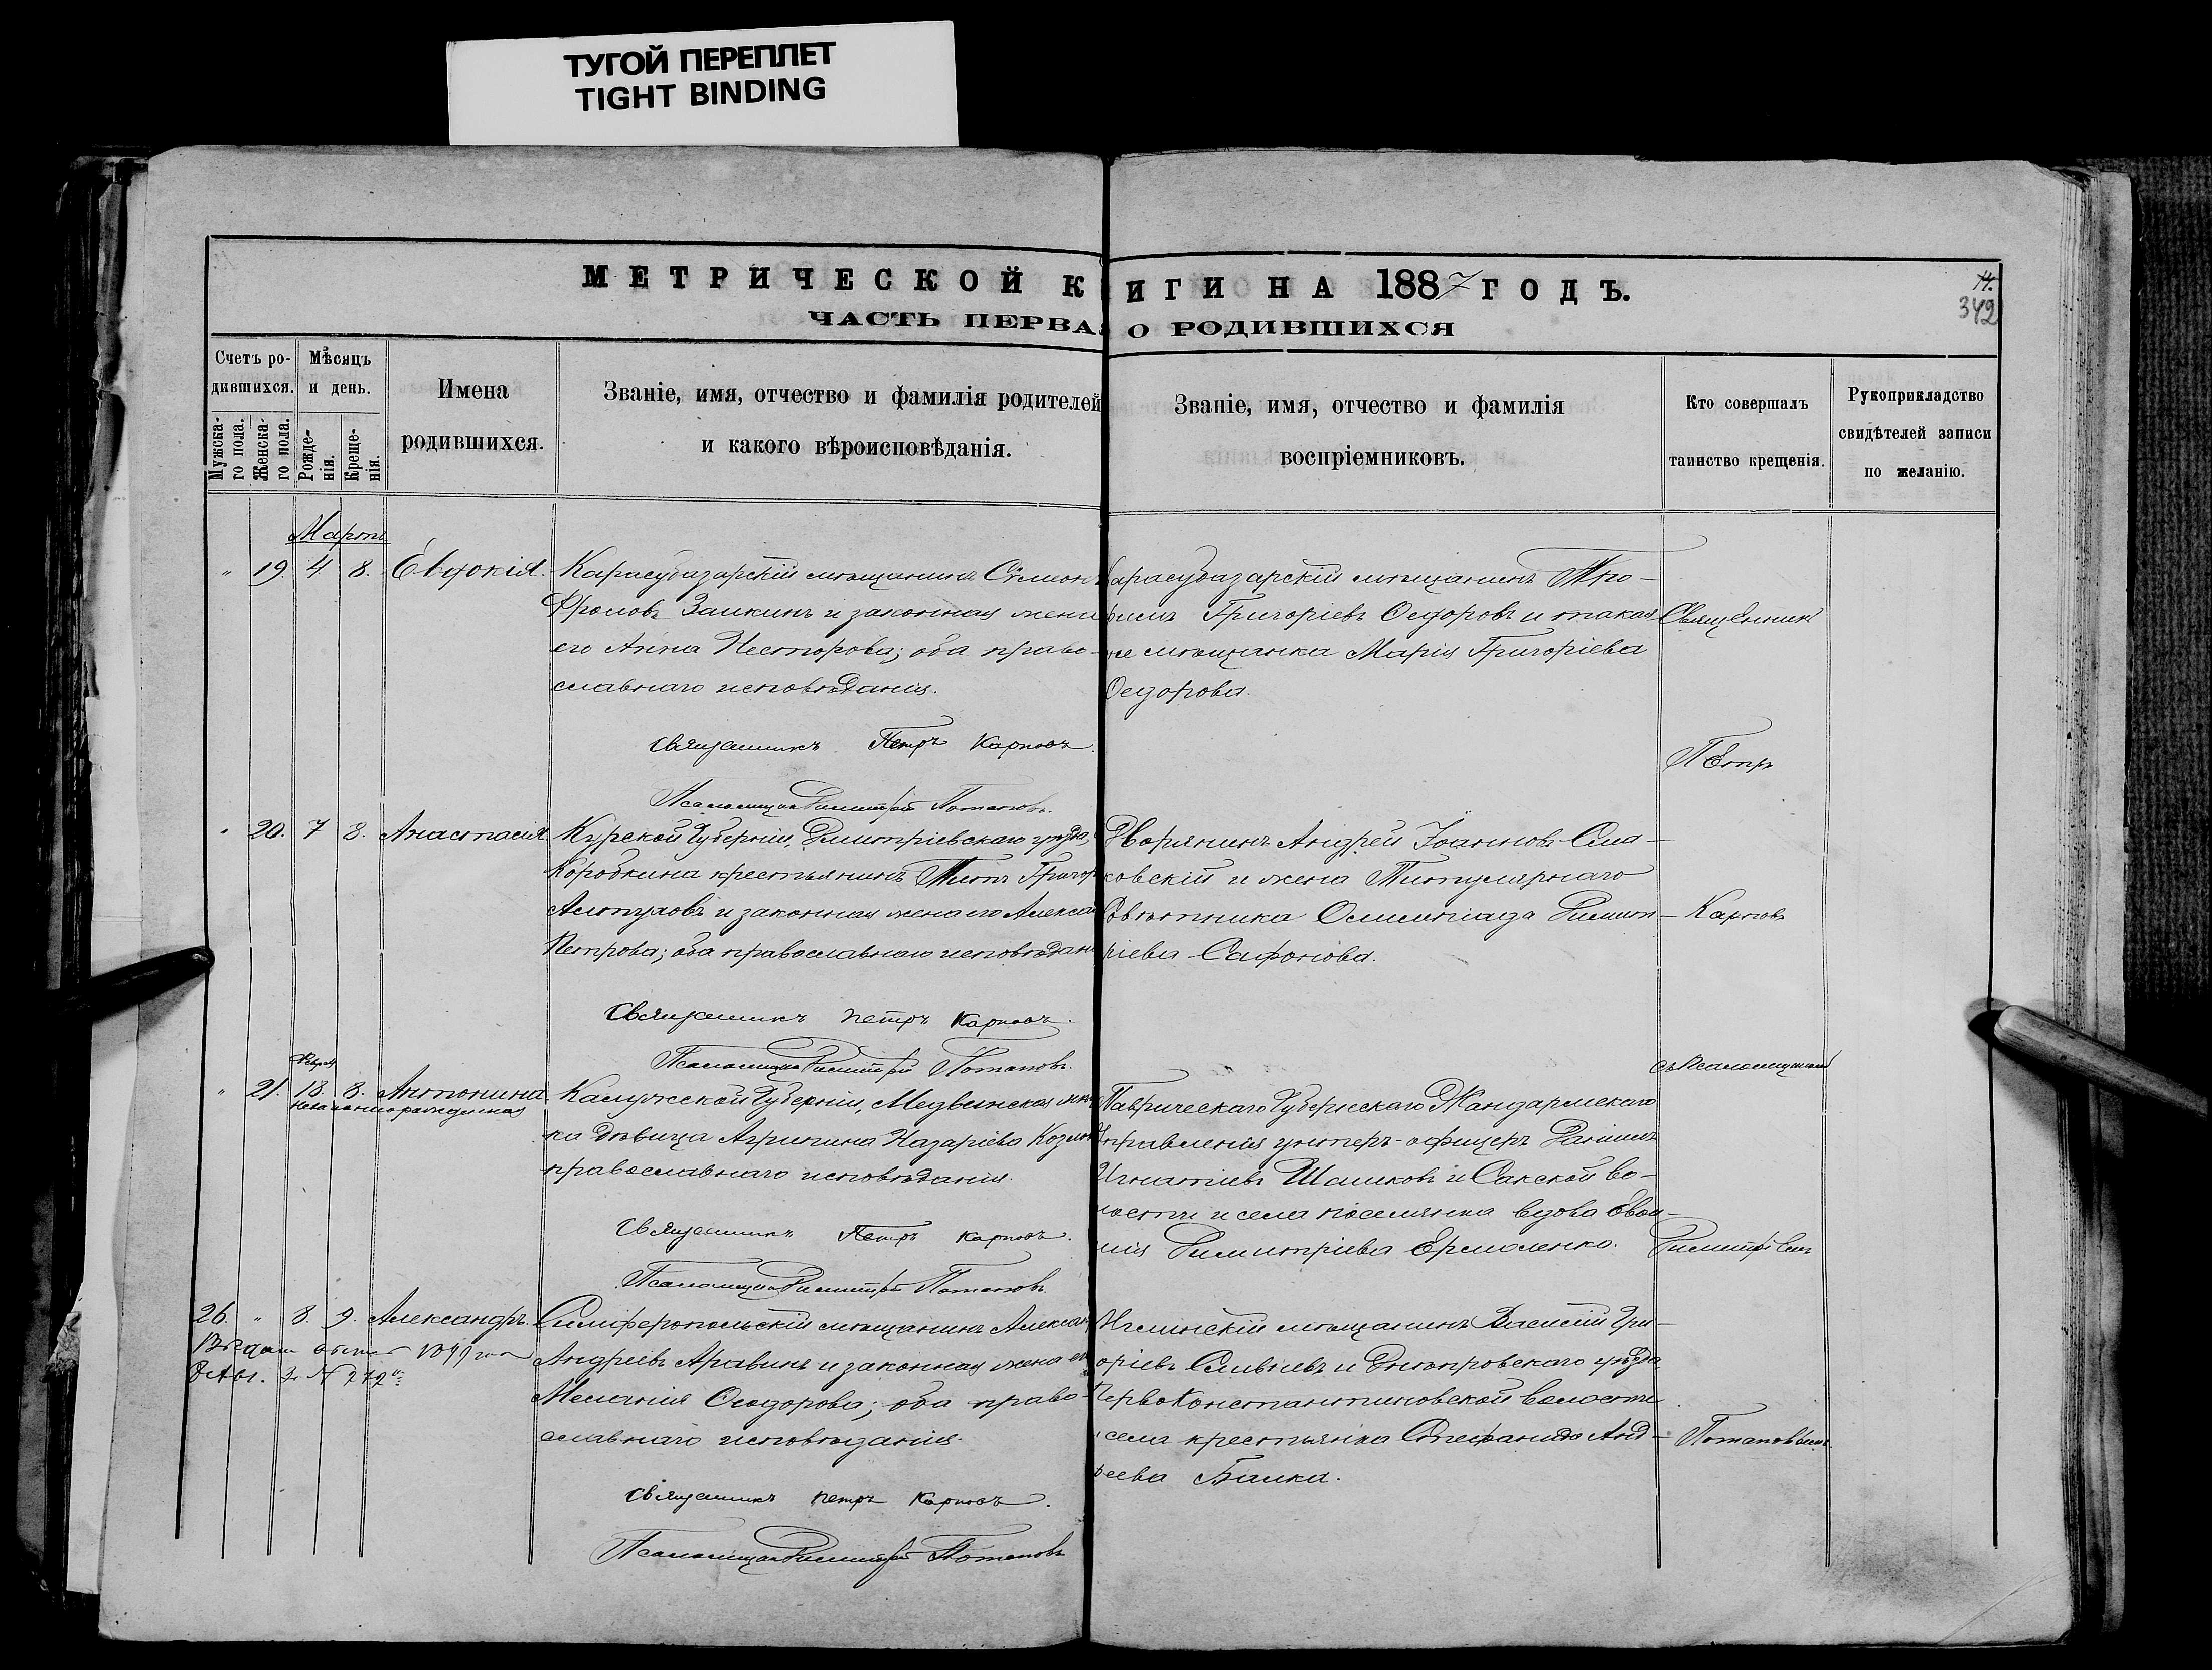 ТУГОЙ ПЕРЕПЛЕТ
TIGHT BINDING
МЕТРИЧЕСКОЙ К ИГИ НА 1887 ГОДЪ.
14.
342
ЧАСТЬ ПЕРВА О РОДИВШИХСЯ
Счетъ ро-
дившихся.
Мужска-
го пола.
Женска-
го пола.
Мѣсяцъ
и день.
Рожде-
нія.
Креще-
нія.
Имена
родившихся.
Званіе, имя, отчество и фамилія родителей
и какого вѣроисповѣданія.
Званіе, имя, отчество и фамилія
воспріемниковъ.
Кто совершалъ
таинство крещенія.
Рукоприкладство
свидѣтелей записи
по желанію.
Мартъ
" 19. 4 8. Евдокія.
Карасубазарскій мѣщанинъ Сѵмеон
Фроловъ Заикинъ и законная жена
его Анна Несторова; оба право-
славнаго исповѣданія.
Священникъ Петръ Карповъ.
Псаломщикъ Димитрій Потаповъ.
арасубазарскій мѣщанинъ Тро-
фимъ Григоріевъ Ѳедоровъ и такая
же мѣщанка Марія Григоріева
Ѳедорова.
Священникъ
Петръ
" 20. 7 8. Анастасія
Курской Губерніи, Димитріевскаго уѣзда,
Коробкина крестьянинъ Титъ Григор
и законная жена его Алекса
Петрова; оба православнаго исповѣдан
Священникъ Петръ Карповъ.
Псаломщикъ Димитрій Потаповъ.
Дворянинъ Андрей Іоанновъ Сма-
ковскій и жена Титулярнаго
Совѣтника Олимпіада Димит-
ріева Сафонова.
Карповъ
съ Псаломщикомъ
Февраля
" 21. 18. 8. Антонина.
Незаконнорожденная
Калужской Губерніи, Медынская мѣщ
ка дѣвица Агрипина Назаріева Козло
православнаго исповѣданія.
Священникъ Петръ Карповъ.
Псаломщикъ Димитрій Потаповъ.
Таврическаго Губернскаго Жандармскаго
Управленія унтеръ-офицеръ Даніилъ
Игнатіевъ Шашковъ и Сакской во-
лости и села поселянка вдова Евѳи-
мія Димитріева Ермоленко.
Димитріемъ
26. " 8. 9. Александръ.
Симферопольскій мѣщанинъ Алексан
Андреевъ Аравинъ и законная жена ег
Меланія Ѳеодорова; оба право-
славнаго исповѣданія.
Священникъ Петръ Карповъ.
Псаломщикъ Димитрій Потаповъ
мѣщанинъ Василій Гри-
оріевъ и Днѣпровскаго уѣзда
Первоконстантиновской волости
села крестьянка Стефанида Анд-
реева Балка.
Потаповымъ.